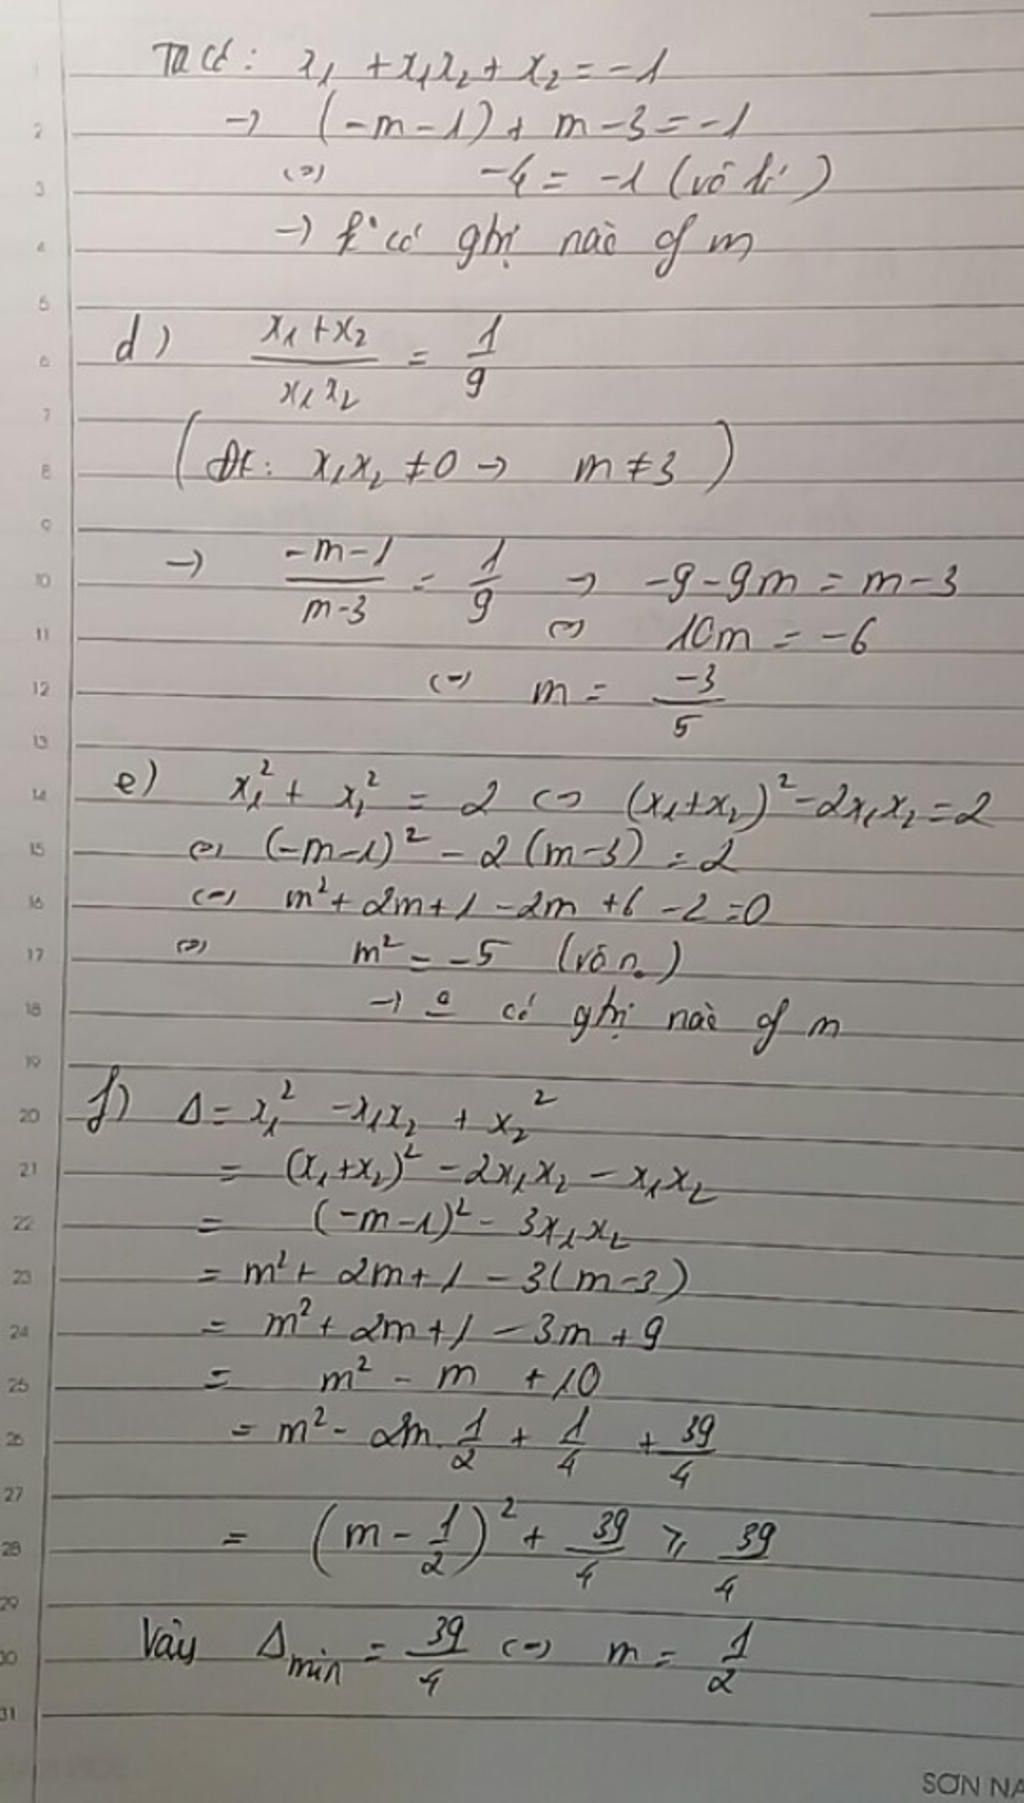 Ta có: x₁ + x₁x₂ + x₂ = -1
→ (-m-1) + m-3 = -1
⇔ -4 = -1 (vô lí)
→ k° có gtrị nào of m
d) (x₁+x₂)/(x₁x₂) = 1/9
(ĐK: x₁x₂ ≠ 0 → m ≠ 3)
→ (-m-1)/(m-3) = 1/9 → -9-9m = m-3
⇔ 10m = -6
⇔ m = -3/5
e) x₁² + x₂² = 2 ⇔ (x₁+x₂)² - 2x₁x₂ = 2
⇔ (-m-1)² - 2(m-3) = 2
⇔ m² + 2m + 1 - 2m + 6 - 2 = 0
⇔ m² = -5 (vô n.)
→ có gtrị nào of m
f) A = x₁² - x₁x₂ + x₂²
= (x₁+x₂)² - 2x₁x₂ - x₁x₂
= (-m-1)² - 3x₁x₂
= m² + 2m + 1 - 3(m-3)
= m² + 2m + 1 - 3m + 9
= m² - m + 10
= m² - 2m.1/2 + 1/4 + 39/4
= (m - 1/2)² + 39/4 ≥ 39/4
Vậy Amin = 39/4 ⇔ m = 1/2
1
2
3
4
5
6
7
8
9
10
11
12
13
14
15
16
17
18
19
20
21
22
23
24
25
26
27
28
29
30
31
SƠN NA